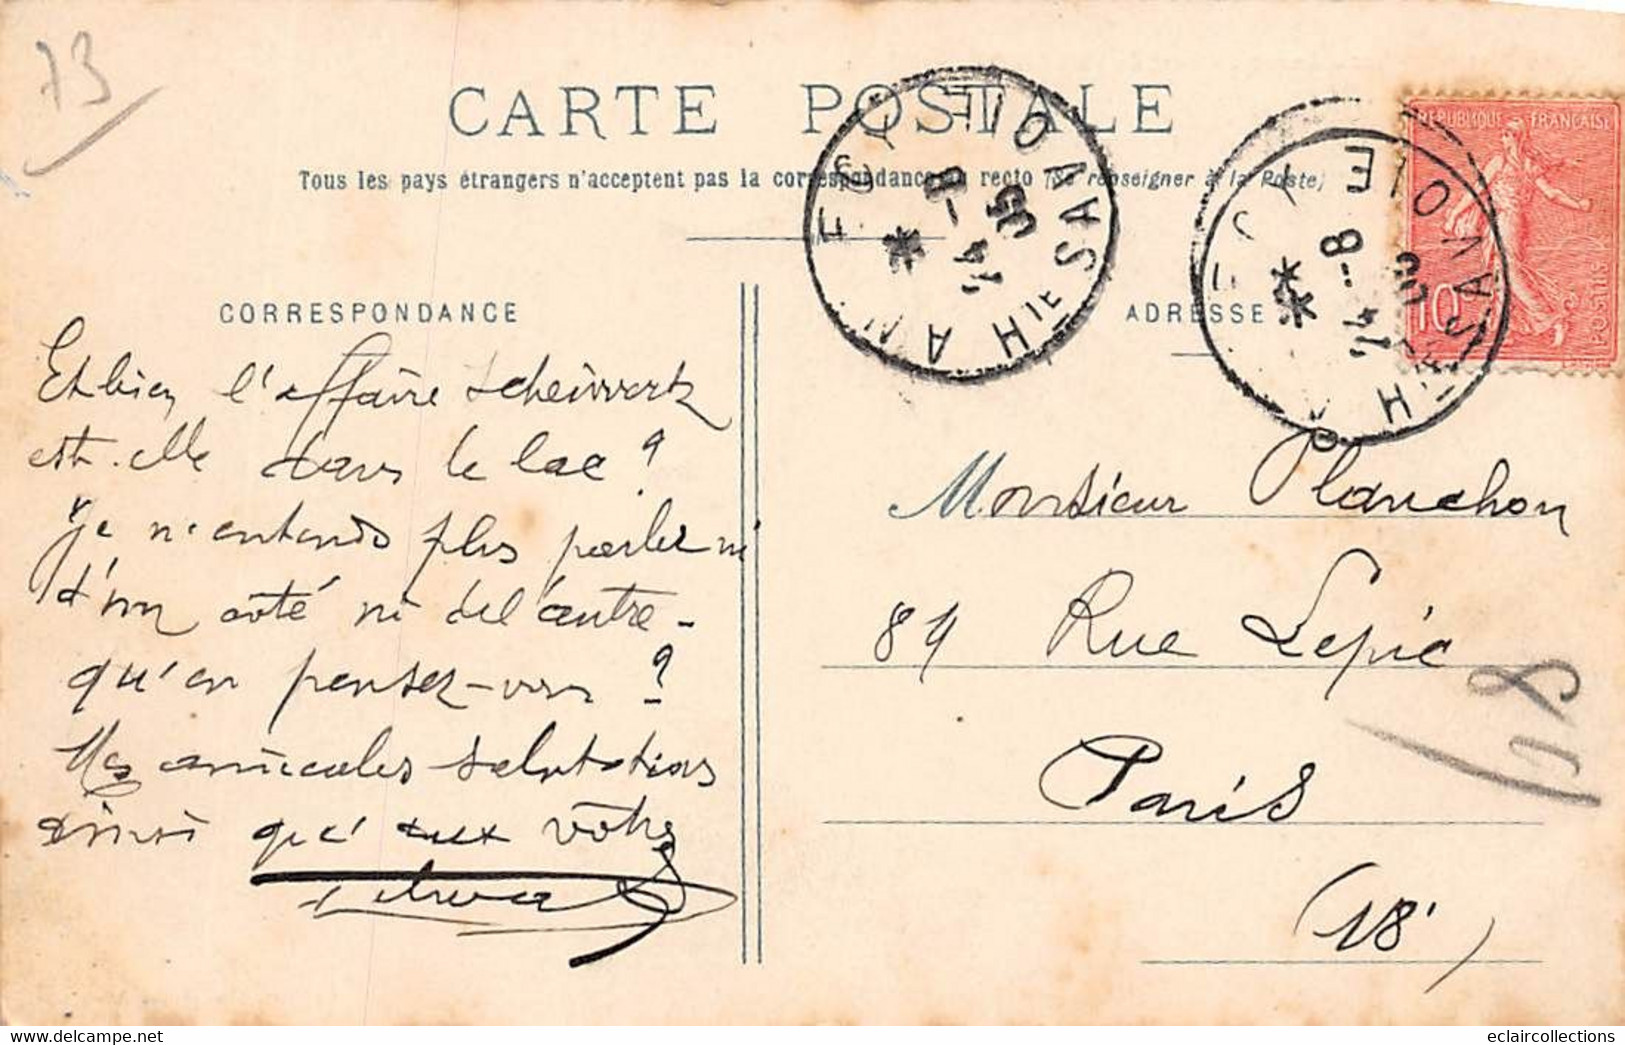 73
CARTE POSTALE
Tous les pays étrangers n'acceptent pas la correspondance au recto (Se renseigner à la Poste)
ANNECY
14 -8
05
HTE SAVOIE
ANNECY
14 -8
05
HTE SAVOIE
REPUBLIQUE FRANCAISE
10
POSTES
CORRESPONDANCE
ADRESSE
Eh bien l'affaire
est-elle dans le lac ?
je n'entends plus parler ni
d'un côté ni de l'autre -
qu'en pensez-vous ?
Mes amicales salutations
ainsi qu'aux vôtres
Monsieur Planchon
89 Rue Lepic
Paris
(18e)
68
eclaircollections